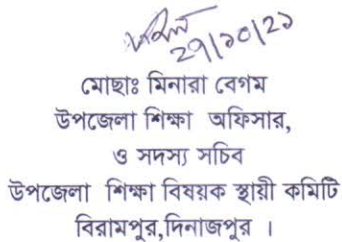 ২৭/১০/২১
মোছাঃ মিনারা বেগম
উপজেলা শিক্ষা অফিসার,
ও সদস্য সচিব
উপজেলা শিক্ষা বিষয়ক স্থায়ী কমিটি
বিরামপুর,দিনাজপুর ।